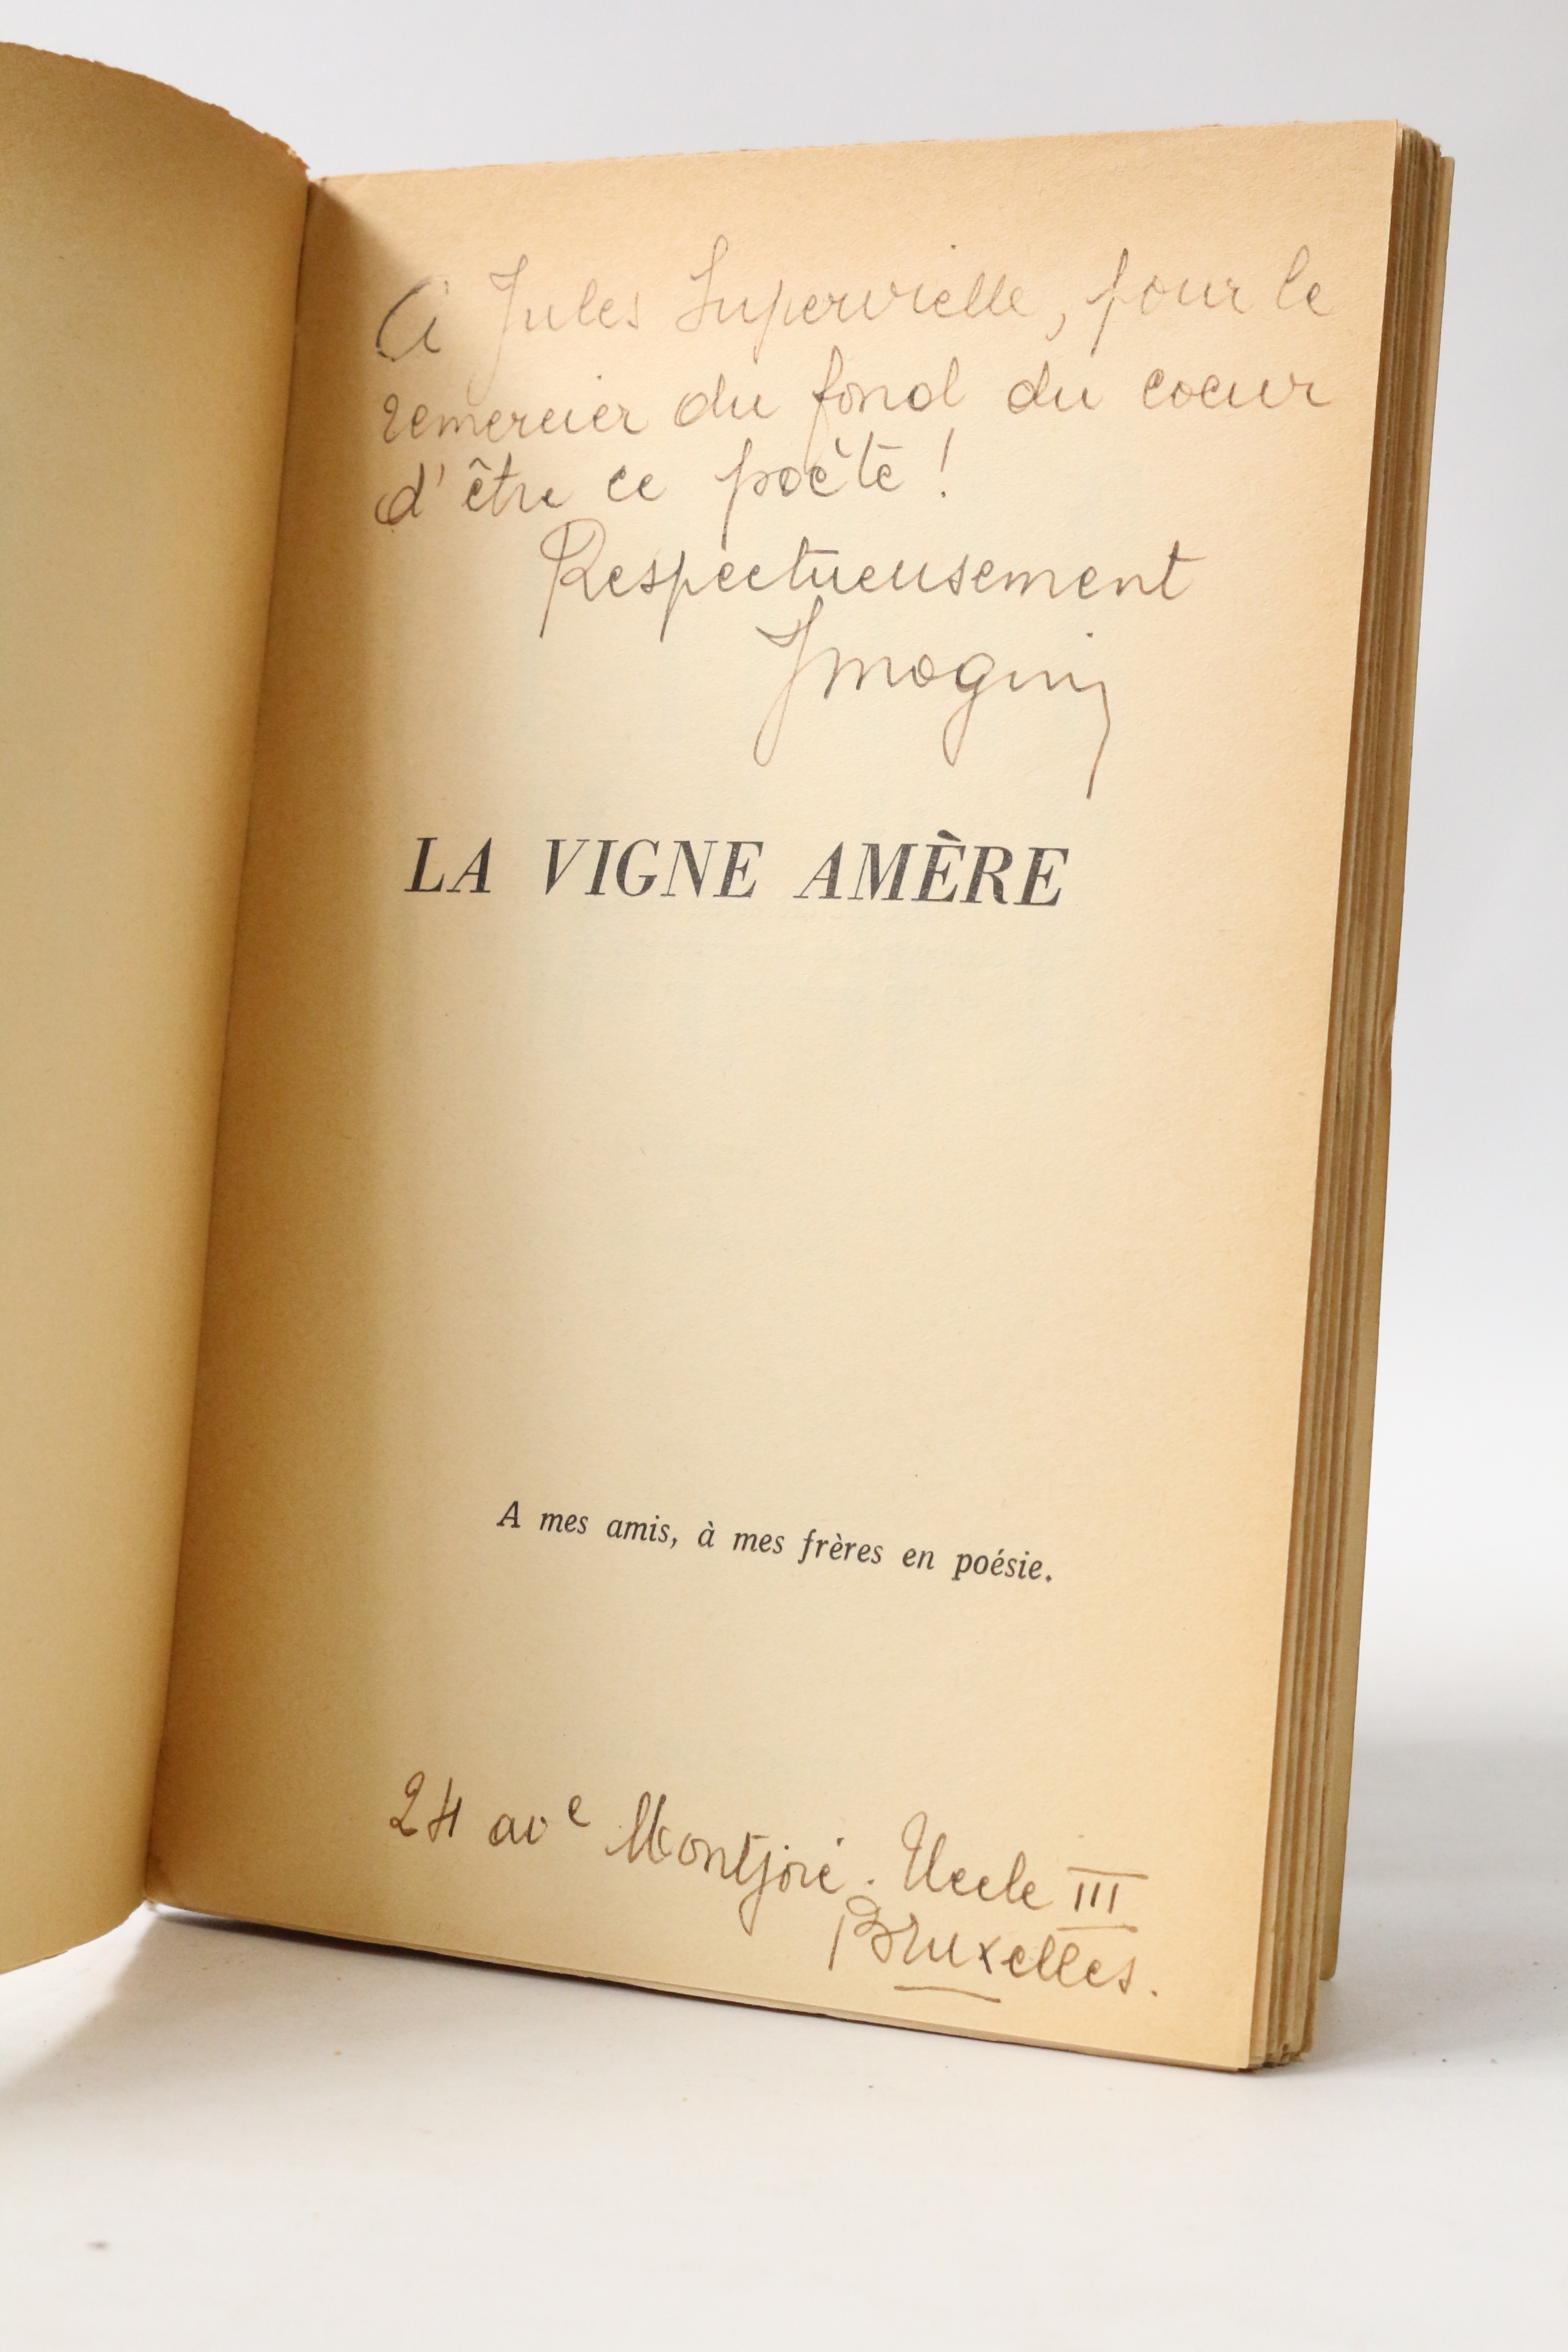 A Jules Supervielle, pour le
remercier du fond du coeur
d'être ce poète !
Respectueusement
LA VIGNE AMÈRE
A mes amis, à mes frères en poésie.
24 avᵉ Montjoie. Uccle III
Bruxelles.